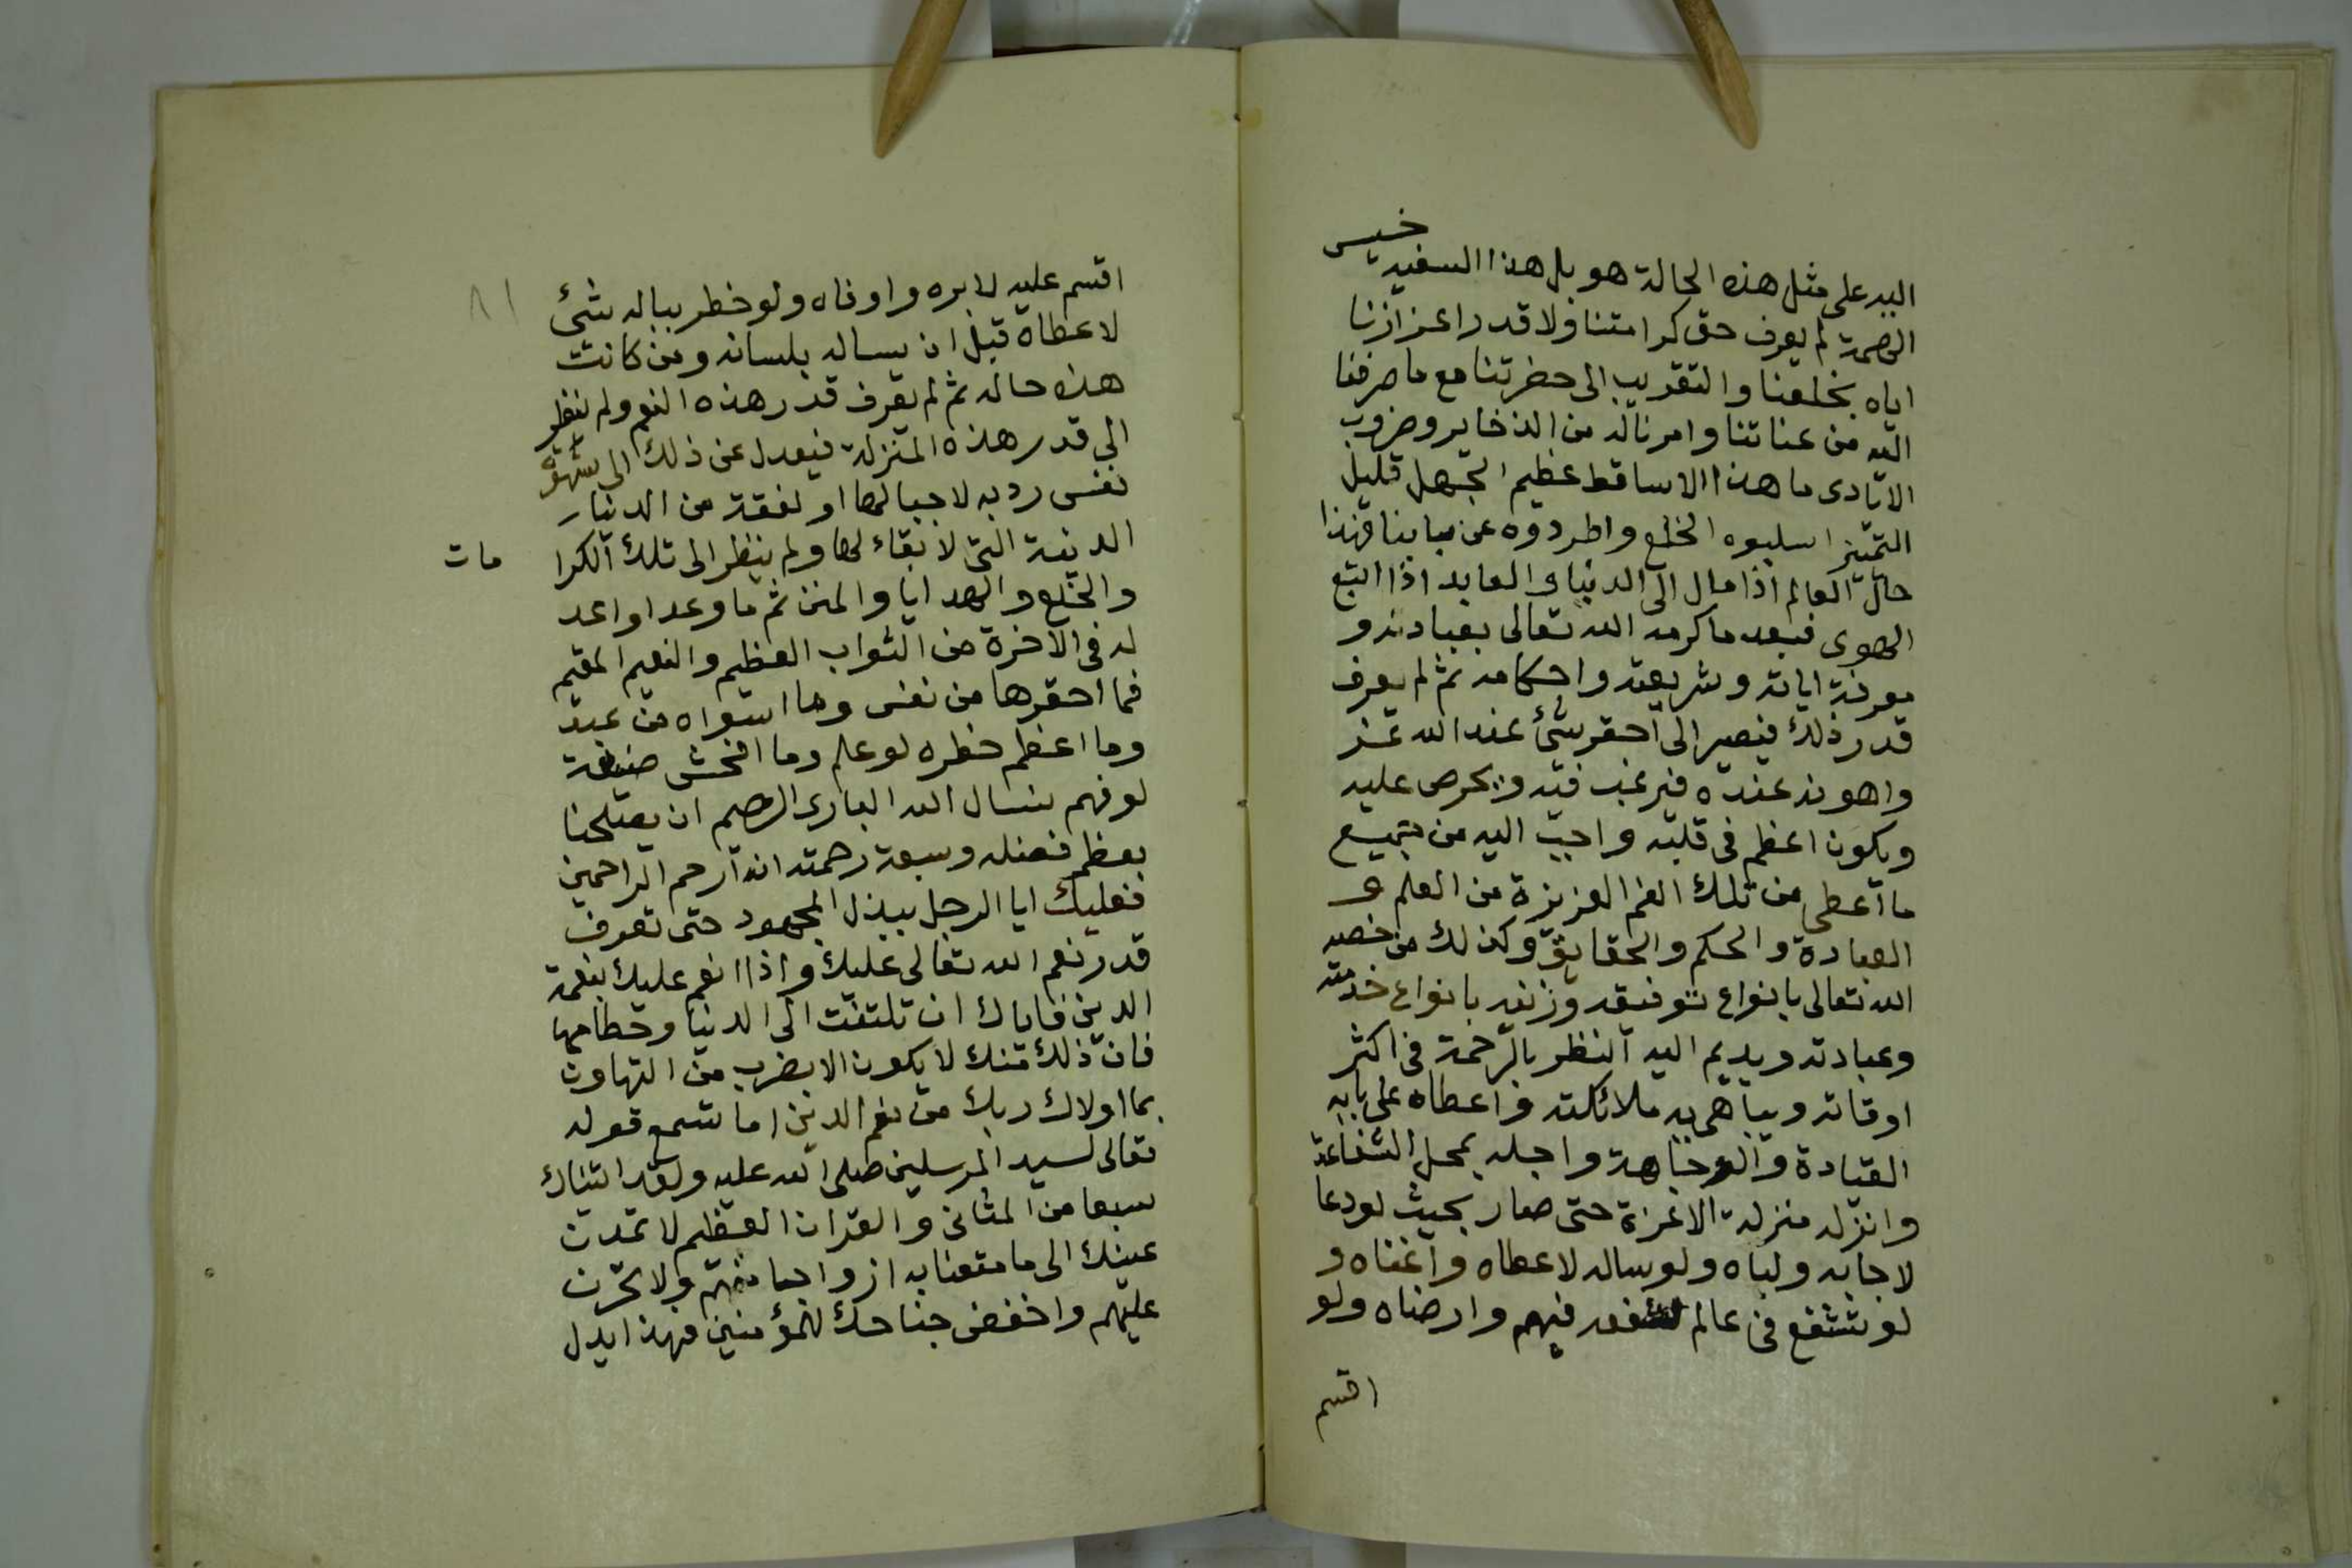 خسيس
اليه على مثل هذه الحالة هو بل هذا السفيه
الهمة لم يعرف حق كرامتنا ولا قدر اعزازنا
اياه بخلعنا والتقريب الى حضرتنا مع ما صرفنا
اليه من عنائتنا وامرنا له من الذخاير وضروب
الايادى ما هذا الا ساقط عظيم الجهل قليل
التميز اسلبوه الخلع واطردوه عن بابنا فهذا
حال العالم اذا مال الى الدنيا والعابد اذا اتبع
الهوى فبعد ما كرمه الله تعالى بعبادته و
معرفة اياته وشريعته واحكامه ثم لم يعرف
قدر ذلك فيصير الى احقر شئ عند الله عز
واهونه عنده فيرغب فيه ويحرص عليه
ويكون اعظم فى قلبه واحب اليه من جميع
ما اعطى من تلك النعم العزيزة من العلم و
العبادة والحكم والحقايق وكذلك من خصه
الله تعالى بانواع توفيقه وزينه بانواع خدمته
وعبادته ويديم اليه النظر بالرحمة فى اكثر
اوقاته ويباهى به ملائكته واعطاه على بابه
القيادة والوجاهة واجله بمحل الشفاعة
وانزله منزلة الاعزة حتى صار بحيث لو دعا
لاجابه ولباه ولو ساله لاعطاه واغناه و
لو شفع فى عالم لشفعه فيهم وارضاه ولو
اقسم
٨١
اقسم عليه لابره واوفاه ولو خطر بباله شئ
لاعطاه قبل ان يساله بلسانه ومن كانت
هذه حاله ثم لم يعرف قدر هذه النعم ولم ينظر
الى قدر هذه المنزلة فيعدل عن ذلك الى شهوة
نفس رديه لا حيا لها او لفقة من الدنيا ر
الدنية التى لا بقاء لها ولم ينظر الى تلك الكرا
مات
والخلع والهدايا والمنن ثم ما وعد او اعد
له فى الاخرة من الثواب العظيم والنعيم المقيم
فما احقرها من نفس وما اسواه من عبد
وما اعظم خطره لو علم وما افحش صنيعة
لو فهم نسال الله البارى الرحيم ان يصلحنا
بعظم فضله وسعة رحمته انه ارحم الراحمين
فعليك ايا الرجل ببذل المجهود حتى تعرف
قدر نعم الله تعالى عليك واذا انعم عليك بنعمة
الدين فاياك ان تلتفت الى الدنيا وحطامها
فان ذلك منك لا يكون الا بضرب من التهاون
بما اولاك ربك من نعم الدين اما تسمع قوله
تعالى لسيد المرسلين صلى الله عليه ولقد اتيناك
سبعا من المثانى والقران العظيم لا تمدن
عينك الى ما متعنا به ازواجا منهم ولا تحزن
عليهم واخفض جناحك للمؤمنين فهذا يدل